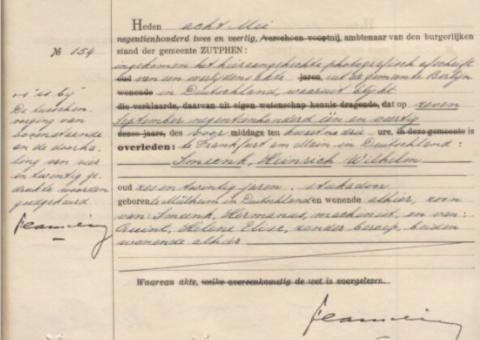 Nº 154
Heden acht Mei
negentienhonderd twee en veertig, verscheen voor mij, ambtenaar van den burgerlijken
stand der gemeente ZUTPHEN:
ingekomen het hieraangehechte photografisch afschrift
oud van een overlijdens akte jaren, uit de gemeente
wonende in Duitschland, waaruit blijkt
die verklaarde, daarvan uit eigen wetenschap kennis dragende, dat op zeven
September negentienhonderd één en veertig
dezes jaars, des voor middags ten kwart na drie ure, in deze gemeente is
overleden: te Frankfurt am Main in Duitschland:
Smeenk, Heinrich Wilhelm
oud zes en twintig jaren, stukadoor
geboren te Mülheim in Duitschland en wonende alhier, zoon
van: Smeenk, Hermanus, machinist, en van:
Quint, Helene Elise, zonder beroep, beiden
wonende alhier
Waarvan akte, welke overeenkomstig de wet is voorgelezen.
De tusschen-
voeging van
bovenstaande
en de doorha-
ling van vier
en twintig ge-
drukte woorden
goedgekeurd